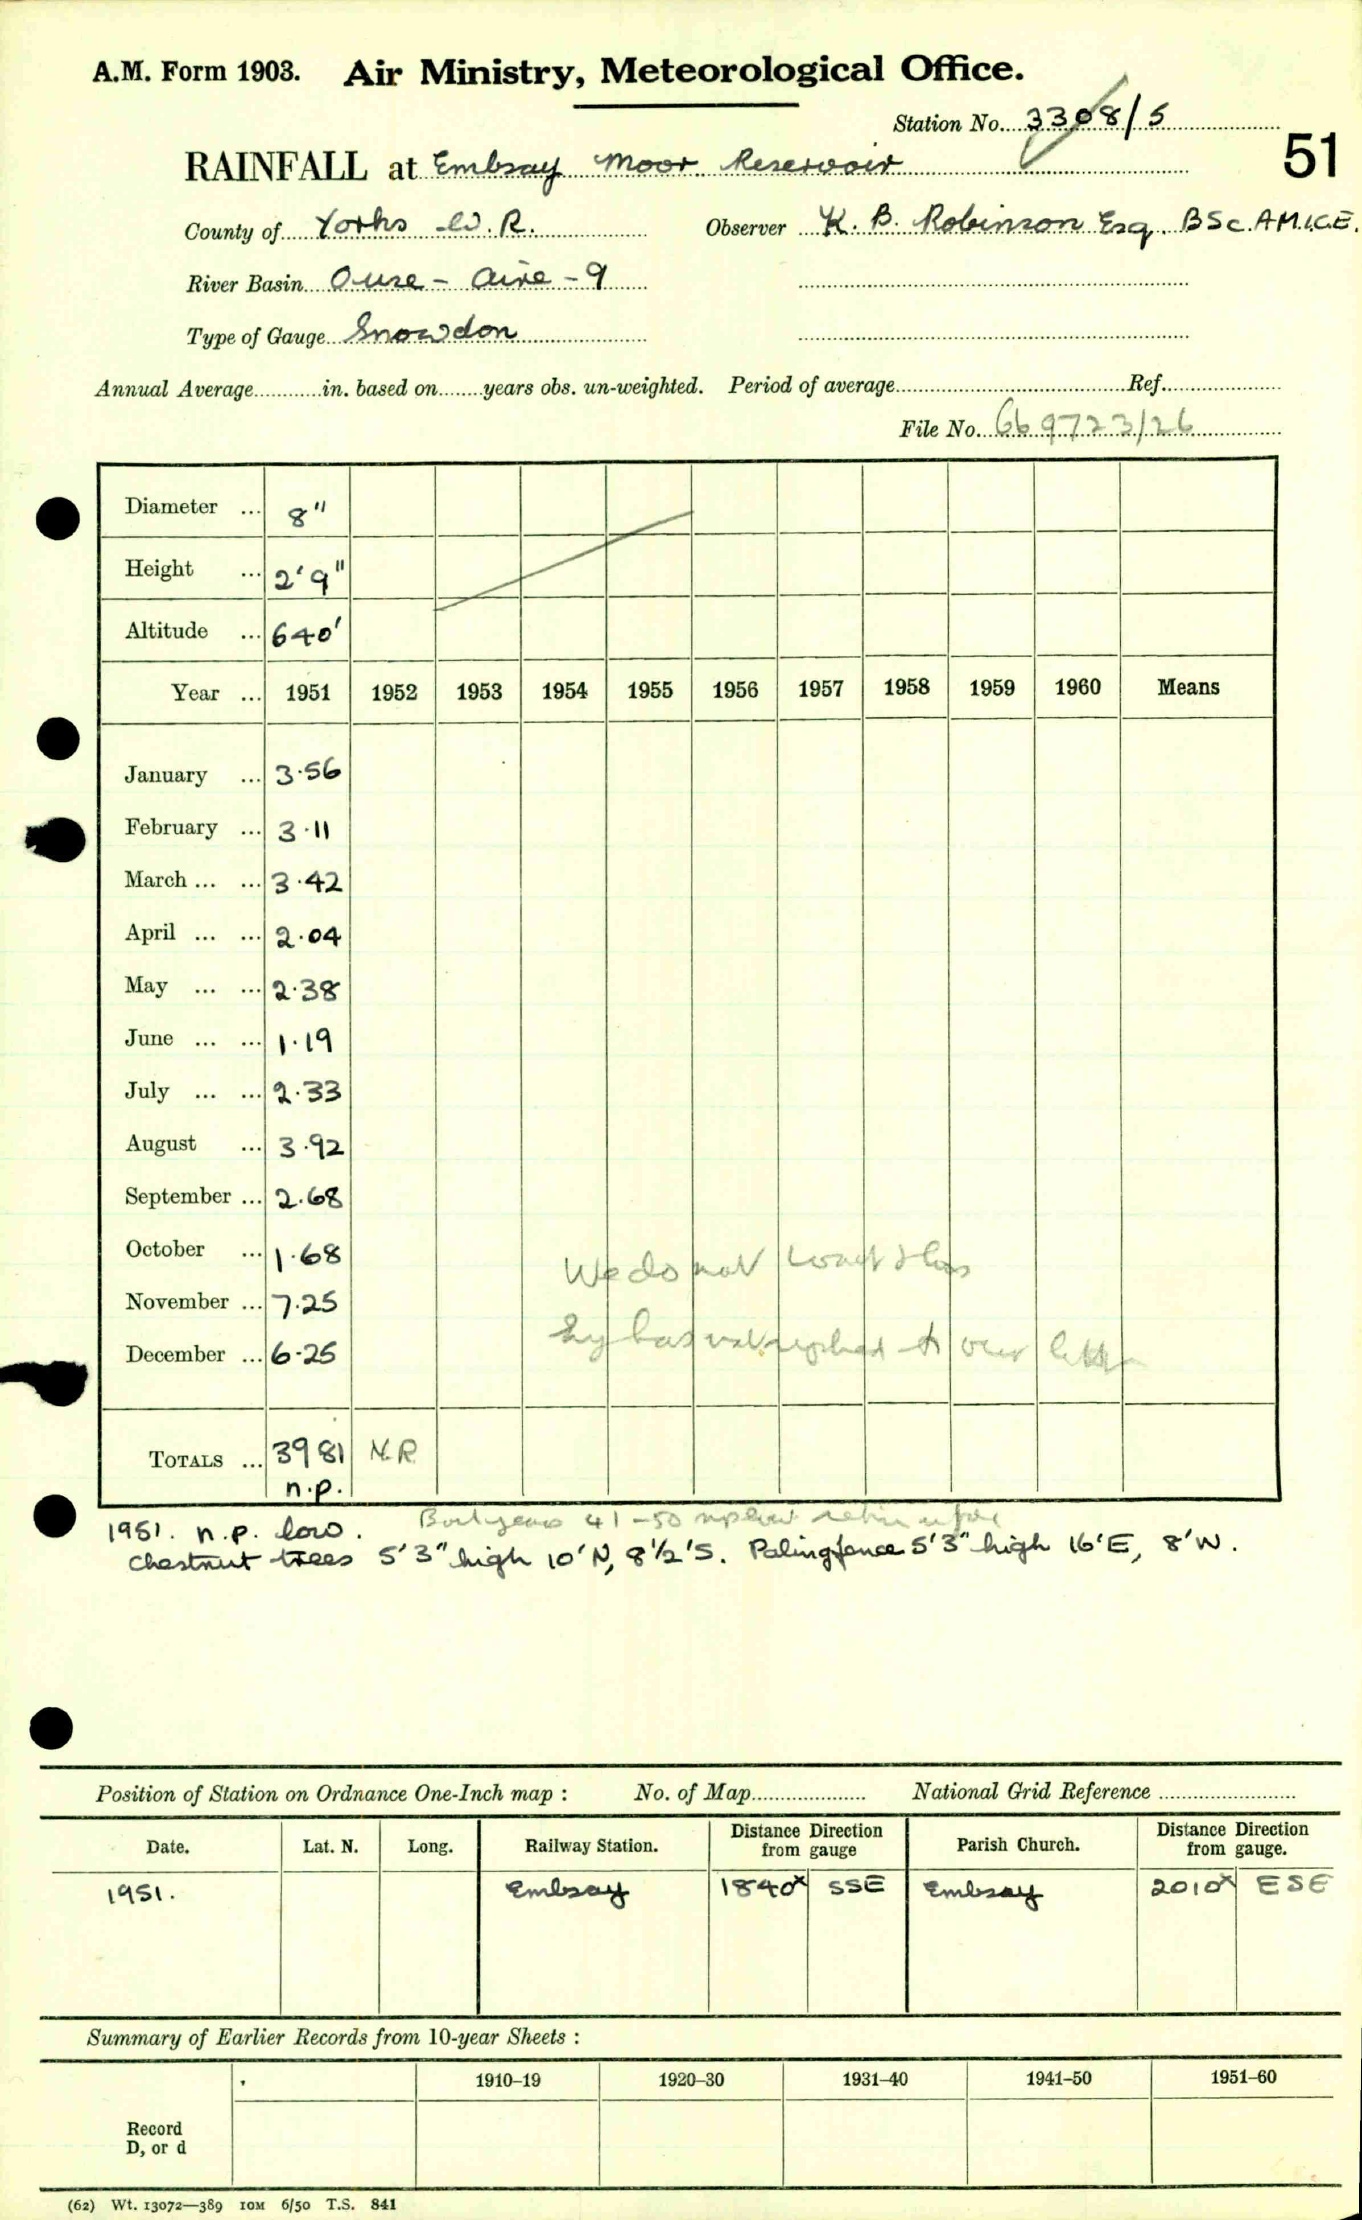 A.M. Form 1903. Air Ministry, Meteorological Office.
Station No. 3308/5
51
RAINFALL at Embsay Moor Reservoir
County of Yorks W.R. Observer K. B. Robinson Esq. BSc. A.M.I.C.E.
River Basin Ouse - Aire - 9
Type of Gauge Snowdon
Annual Average in. based on years obs. un-weighted. Period of average Ref.
File No. 669723/26
Diameter ... 8"
Height ... 2'9"
Altitude ... 640'
Year ... 1951 1952 1953 1954 1955 1956 1957 1958 1959 1960 Means
January ... 3.56
February ... 3.11
March ... ... 3.42
April ... ... 2.04
May ... ... 2.38
June ... ... 1.19
July ... ... 2.33
August ... 3.92
September ... 2.68
October ... 1.68
We do not want this
November ... 7.25
has not replied to our letter
December ... 6.25
TOTALS ... 39 81 N.R.
n.p.
1951. n.p. low. 41-50
Chestnut trees 5'3" high 10'N, 8½'S. Paling fence 5'3" high 16'E, 8'W.
Position of Station on Ordnance One-Inch map : No. of Map National Grid Reference
Date. Lat. N. Long. Railway Station. Distance Direction from gauge Parish Church. Distance Direction from gauge.
1951. Embsay 1840x SSE Embsay 2010x ESE
Summary of Earlier Records from 10-year Sheets :
1910–19 1920–30 1931–40 1941–50 1951–60
Record
D, or d
(62) Wt. 13072—389 10M 6/50 T.S. 841